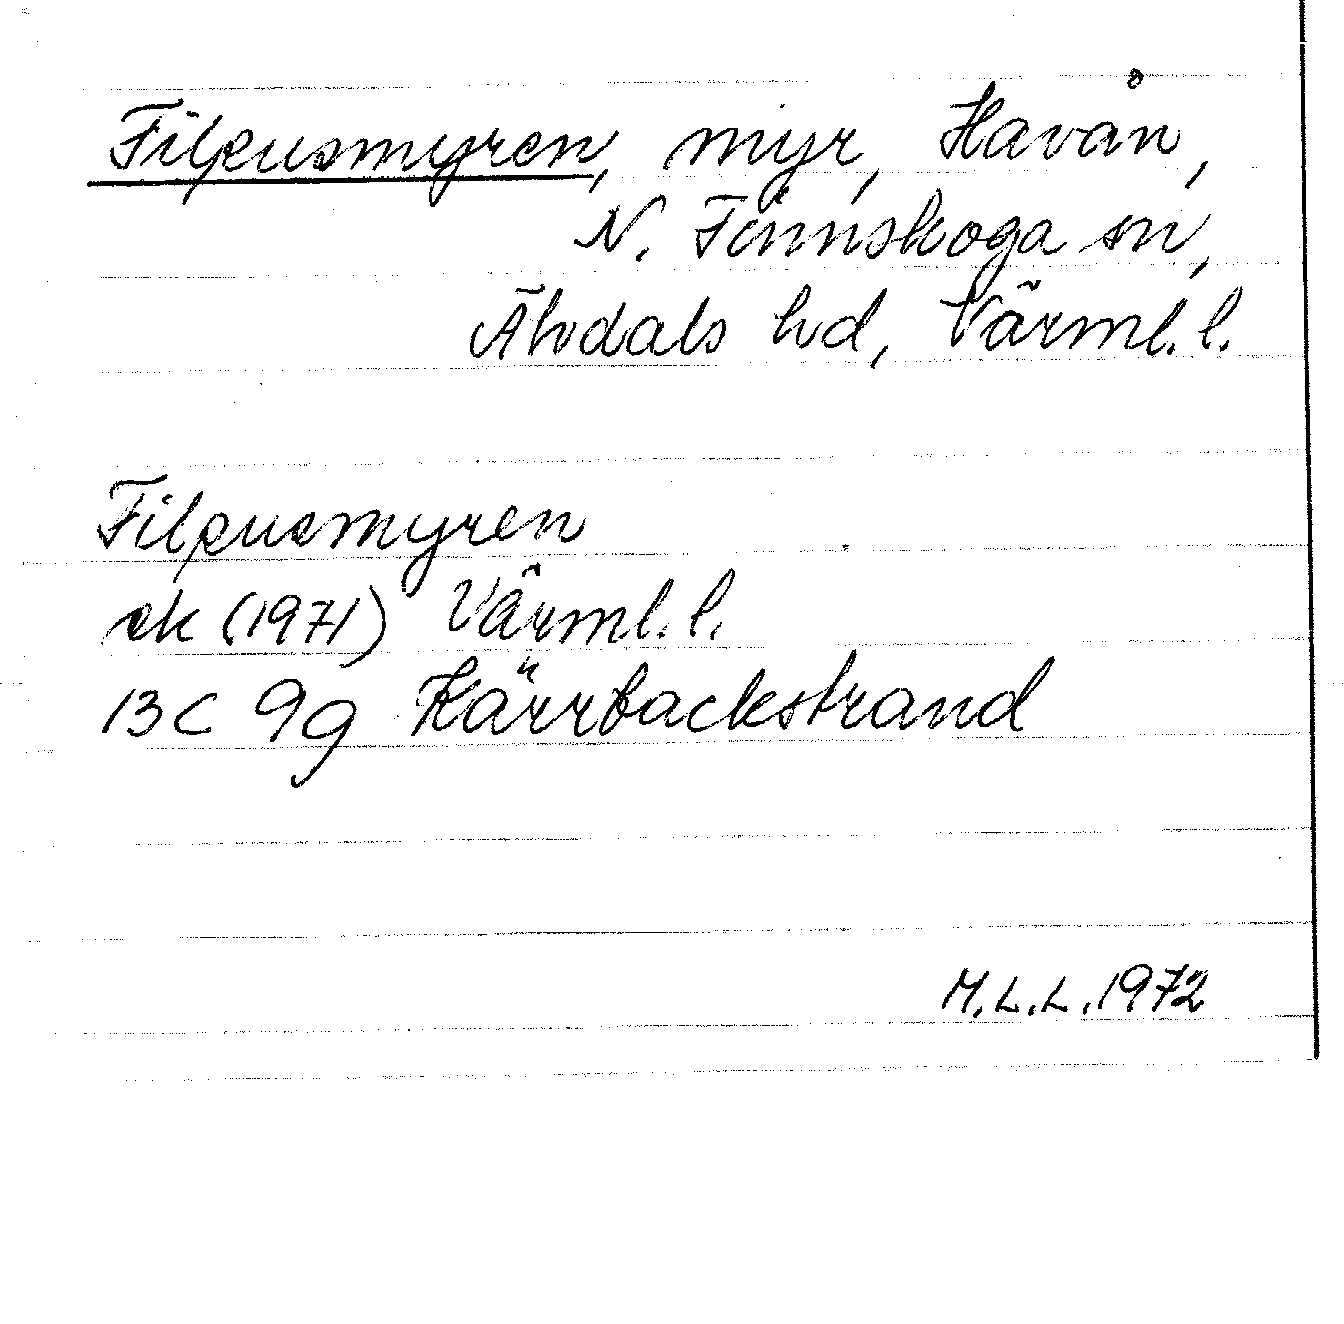 Filpusmyren, myr, Havån,
N. Finnskoga sn,
Älvdals hd, Värml. l.
Filpusmyren
ek (1971) Värml. l.
13C 9g Kärrbackstrand
M.L.L. 1972